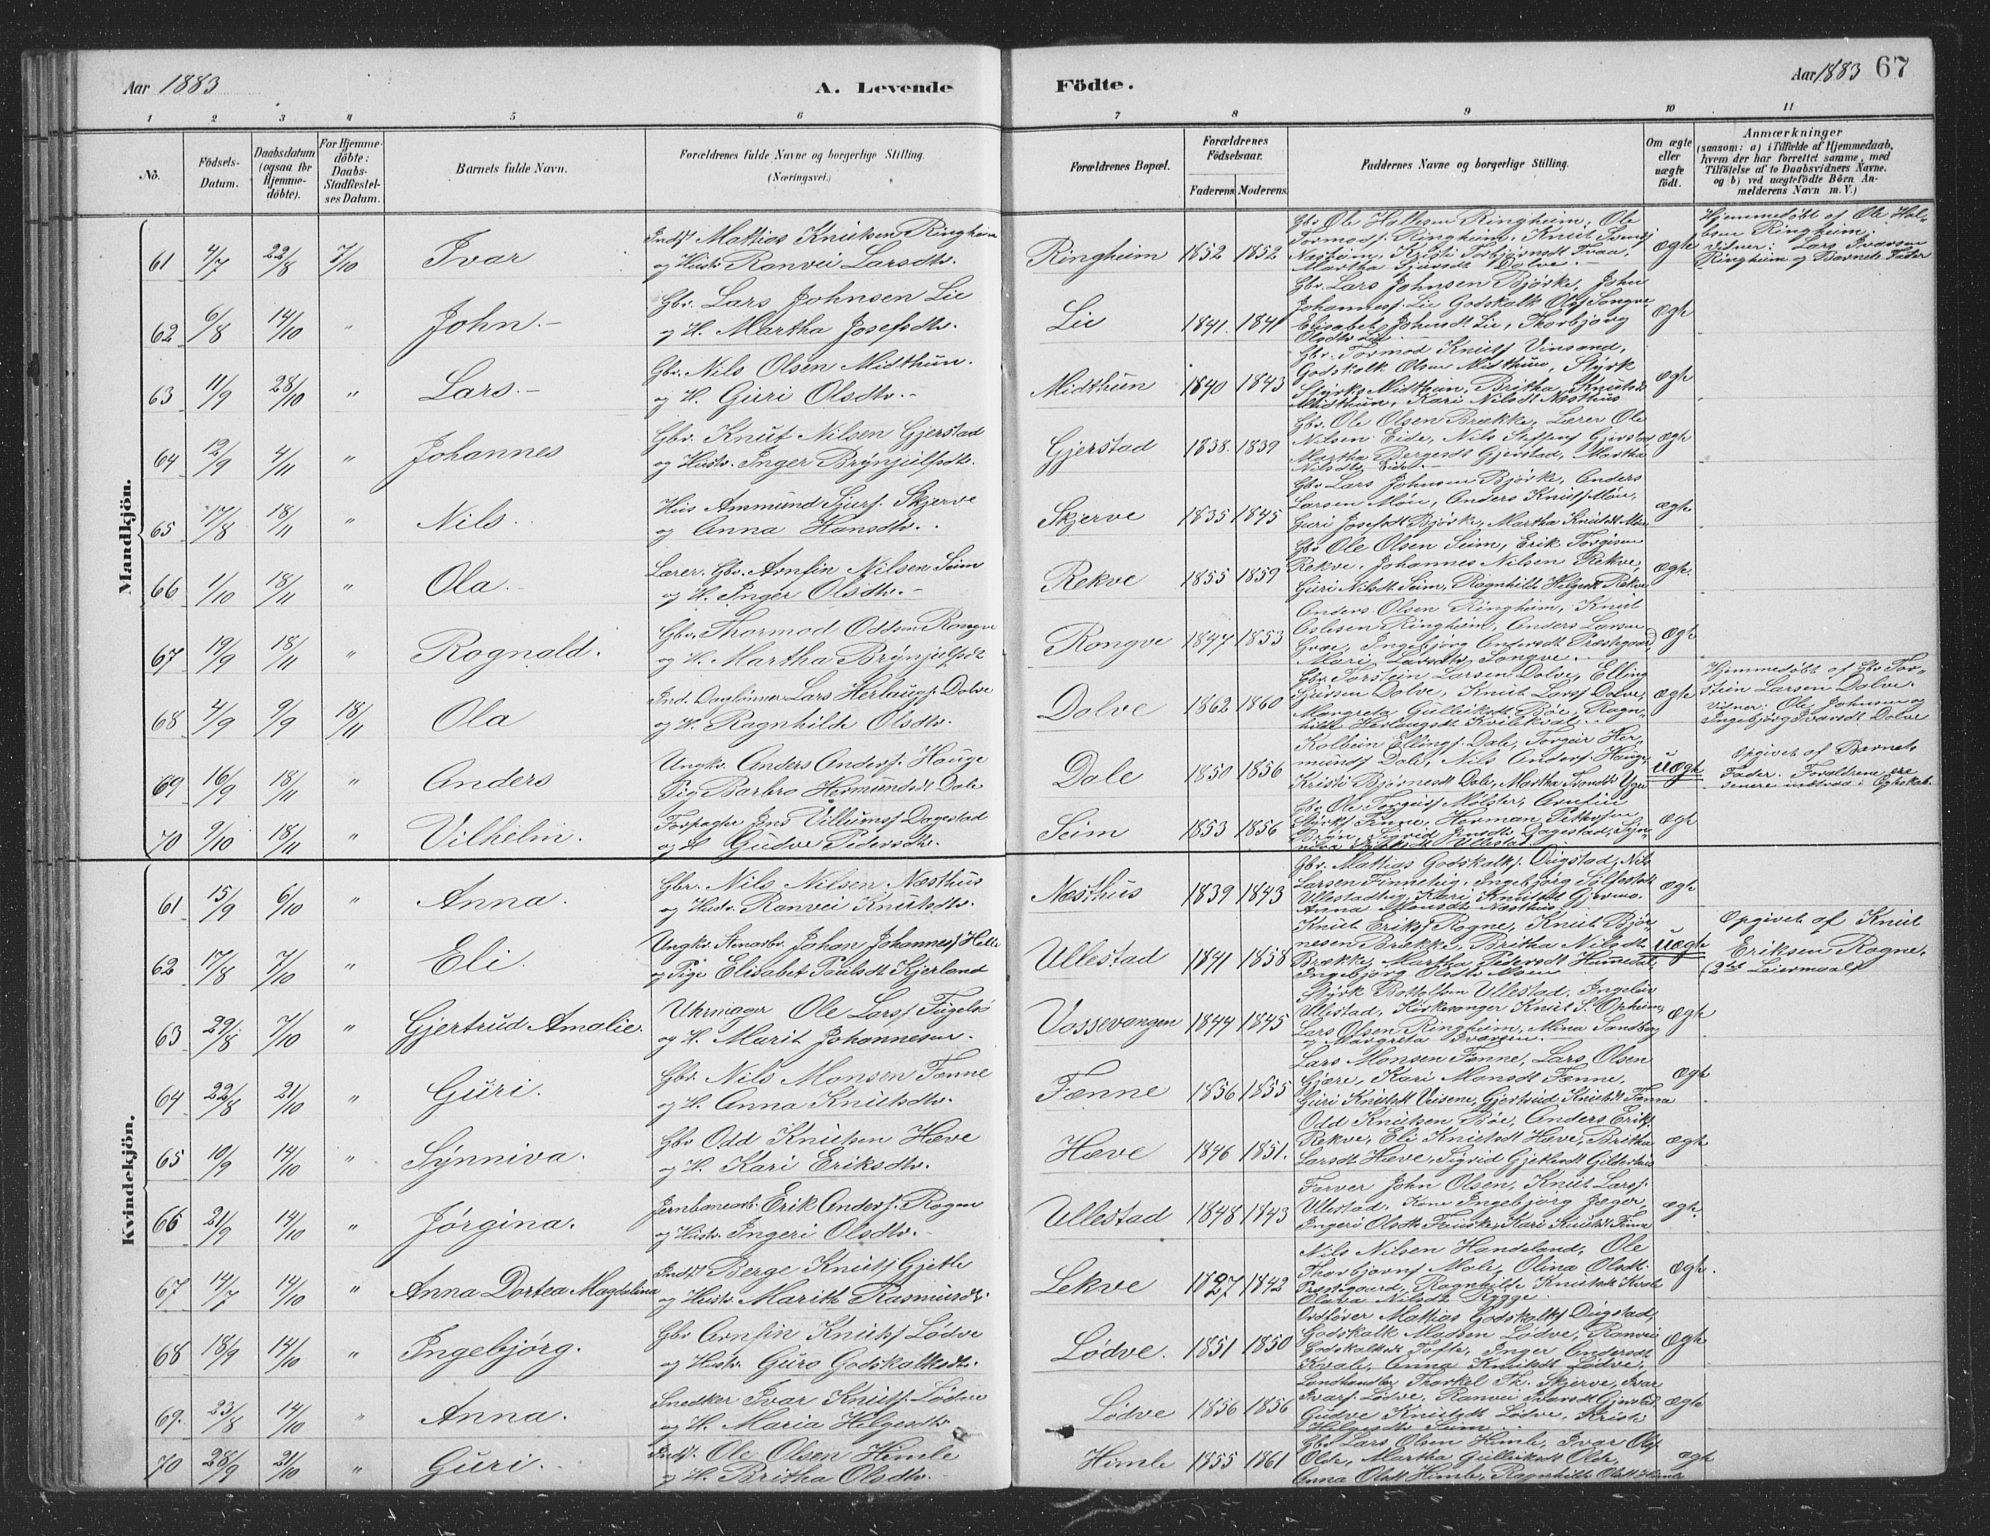 Aar 1883
A. Levende
Födte.
Aar 1883
67
1 2 3 4 5 6 7 8 9 10 11
No.
Födsels-Datum.
Daabsdatum (ogsaa for Hjemme-döbte).
For Hjemme-döbte: Daabs-Stadfæstel-ses Datum.
Barnets fulde Navn.
Forældrenes fulde Navne og borgerlige Stilling.
(Næringsvei.)
Forældrenes Bopæl.
Forældrenes Födselsaar.
Faderens Moderens
Faddernes Navne og borgerlige Stilling.
Om ægte eller uægte födt.
Anmærkninger
(saasom: a) i Tilfælde af Hjemmedaab, hvem der har forrettet samme, med Tilföielse af to Daabsvidners Navne. og b) ved uægtefödte Börn An-melderens Navn m. V.)
Mandkjön.
61 4/7 22/8 7/10 Ivar
Indst Mathias Knutsen Ringheim
og Hustr. Ranvei Larsdtr.
Ringheim 1852 1852
Martha Sjursdt Dolve
ægte
Hjemmedöbt af Ole Hel-
Ringheim.
Vidner: Lars Ivarsen
Ringheim og Barnets Fader
62 6/8 14/10 " John.-
Gbr. Lars Johnsen Lie
og H. Martha Josefsdtr.
Lie 1841 1841
Gbr. Lars Johnsen Björke, John
Johannesf Lie Godskalk Olsf Songve
Elisabet Johnsdt Lie, Thorbjörg
Olsdtr Lie
ægte
63 11/9 28/10 " Lars.-
Gbr. Nils Olsen Midthun.
og H. Guri Olsdtr.-
Midthun 1840 1843
Gbr. Tormod Knutsf Vinsand,
Godskalk Olsen Midthun, Styrk
Midthun, Kari Nilsdt Næsthus
ægte
64 12/9 4/11 " Johannes
Gbr. Knut Nilsen Gjerstad
og Hustr. Inger Brynjulfsdtr.
Gjerstad 1838. 1839
Gbr. Ole Olsen Brække, Lærer Ole
Nilsen Eide, Nils Gjerstad
Martha Bergesdt Gjerstad, Martha
Nilsdtr Eide.
ægte
65 17/8 18/11 " Nils.
Hus Ammund Sjursf. Skjerve
og Anna Hansdtr.
Skjerve 1835 1845
Gbr Lars Johnsen Björke, Anders
Larsen Möen, Anders Knutsf Möen,
Guri Josefsdt Björke, Martha Knutsdt Möen
ægte
66 11/10 18/11 " Ola.-
Lærer. Gbr. Arnfin Nilsen Seim
og H. Inger Olsdtr.-
Rekve 1855 1859
Gbr Ole Olsen Seim, Erik Torgisen
Rekve, Johannes Nilsen Rekve,
Guri Nilsdt Seim, Ragnhilde Helgesdt Rekve
ægte.
67 19/9 18/11 " Rognald.
Gbr. Thormod Oddsen Rongve
og H. Martha Brynjulfsdt
Rongve 1847 1853
Anders Olsen Ringheim, Knut
Oslesen Ringheim, Anders Larsen
Gvæ, Ingebjörg Andersdt Prestegaard
Mari Larsdtr Songve.
ægte
68 4/9 9/9 18/11 Ola
Ind. Daglönner Lars Herlaugsf Dolve
og H. Ragnhilde Olsdtr.
Dolve 1862 1860
Gbr Torstein Larsen Dolve, Elling
Dolve, Knut Larsf Dolve,
Margreta Gulleiksdt Böe, Ragn-
hilde Herlaugsdt Kvilekval.
ægte
Hjemmedöbt af Gbr Tor-
stein Larsen Dolve.
Vidner: Ole Johnsen og
Ingebjörg Ivarsdt Dolve
69 16/9 18/11 " Anders
Ungkr. Anders Andersf. Hauge
Pig Barbro Hermundsdt Dale
Dale 1850 1856
Kolbein Ellingsf Dale, Torgeir Her-
mundsf Dale, Nils Andersf Hauge
Kristi Dale, Martha
uægte
Opgivet af Barnets
Fader. Forældrene ere
senere indtraa i Egteskab.
70 9/10 18/11 " Vilhelm.
Forpagter Jens Villumsf Dagestad
og H Gudve Pedersdtr.
Seim 1853 1856
Gbr Ole Torgeirsf Mölster, Arnfin
Styrksf Fenne, Herman Pettersen
Brön, Sigrid Jensdt Dagestad, Syn-
Ullestad
ægte
Kvindekjön.
61 15/9 6/10 " Anna.
Gbr. Nils Nilsen Næsthus
og Hustr. Ranvei Knutsdtr.
Næsthus 1839 1843
Gbr. Mathias Godskalksf. Dugstad, Nils
Larsen Finneteig, Ingebjörg
Anna Monsdt Næsthus.
ægte
62 17/8 7/10 " Eli.
Ungkr. Stenarbr. Johan Johannesf Helle
og Pige Elisabet Paulsdt Kjerland
Ullestad 1841 1858
Knut Eriksf Rogne, Knut Björ-
nesen Brække, Britha Nilsdt
Brække, Martha Pedersdt Himmedal,
Ingebjörg Olsdtr
uægte
Opgivet af Knut
Eriksen Rogne.
(2det Leiermaal
63 29/8 7/10 " Gjertrud Amalie.
Uhrmager Ole Larsf Fugelö
og H. Marit Johannesen.
Vossevangen 1844 1845
Styrk Bottolfsen Ullestad, Ingeleiv
Ullestad, Kirkesanger Knut S. Opheim,
Lars Olsen Ringheim, Mina Sandberg
og Margreta Ivarsen.
ægte
64 22/8 21/10 " Guri.
Gbr. Nils Monsen Fenne
og H. Anna Knutsdtr.
Fenne 1856 1855
Lars Monsen Fenne, Lars Olsen
Gjære, Kari Monsdt Fenne,
Guri Knutsdt Veisene, Gjertrud Knutsdt Fenne
ægte
65 10/9 14/10 " Synniva.
Gbr Odd Knutsen Hæve
og H. Kari Eriksdtr.
Hæve 1846 1851.
Odd Knutsen Böe, Anders Eriksf
Rekve, Eli Knutsdt Hæve, Britha
Larsdt Hæve, Sigrid Gjeklesdt
ægte
66 21/9 14/10 " Jörgina.
Jernbanearb. Erik Andersf. Rogne
og Hustr. Ingeri Olsdtr.
Ullestad 1848 1843
Farver John Olsen, Knut Larsf
Ullestad, Kone Ingebjörg Jæger,
Ingeri Olsdt Fenske, Kari Knutsdt Fenne
ægte.
67 14/7 14/10 " Anna Dortea Magdalena
Indst Berge Knutsf Gjetle
og Hustr. Marith Rasmusdt.
Lekve 1827 1842
Nils Nilsen Handeland, Ole
Thorbjörnsf Mole, Olina Olsdt.
Prestegaard, Ragnhilde Knutsdt
Olava Nilsdt Rygge.
ægte.
68 18/9 14/10 " Ingebjörg.
Gbr Arnfin Knutsf Lödve
og Hustr. Guro Godskalksdtr.
Lödve. 1851 1850
Ordförer Mathias Godskalksf Dugstad,
Godskalk Madsen Lödve, Ranvei
Godskalksdt Tofte, Inger Andersdt
Kvale, Anna Knutsdt Lödve,
ægte
69. 23/8 14/10 " Anna.
Snedker Ivar Knutsf Lödve
og H. Maria Helgesdtr.
Lödve 1856 1856
Landhandler Thorkel Th. Skjerve, Ivar
Ivarsf Lödve, Ranvei Ivarsdt Gjerstad
Gudve Knutsdt Lödve, Kristi
Helgesdtr Seim
ægte
70 28/9 21/10 " Guri.-
Indst. Ole Olsen Himle
og H. Britha Olsdtr.
Himle 1855 1861
Gbr Lars Olsen Himle, Ivar Olsf
Olde, Martha Gulleiksdt Olde,
Anna Olsdt Himle, Ragnhilde Olsdt Himle
ægte